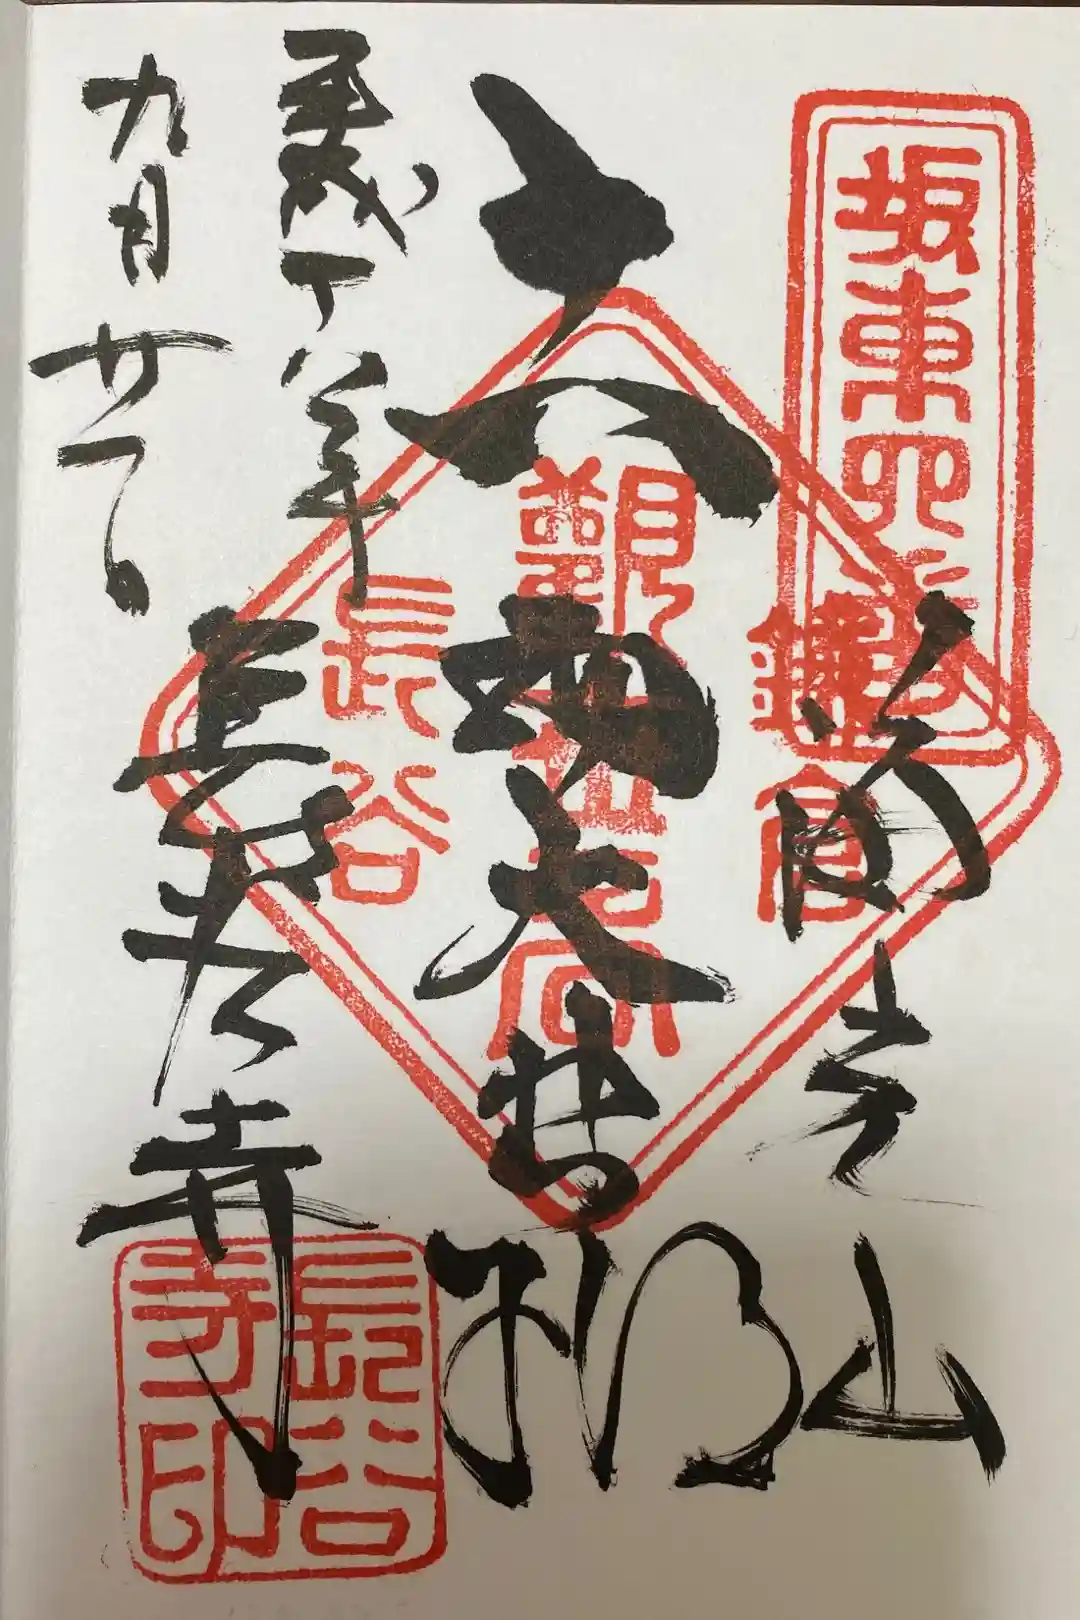 坂東四
鎌倉
觀世音
長谷
海光山
十一面大悲殿
長谷寺
平成十八年
九月廿日
長谷寺印